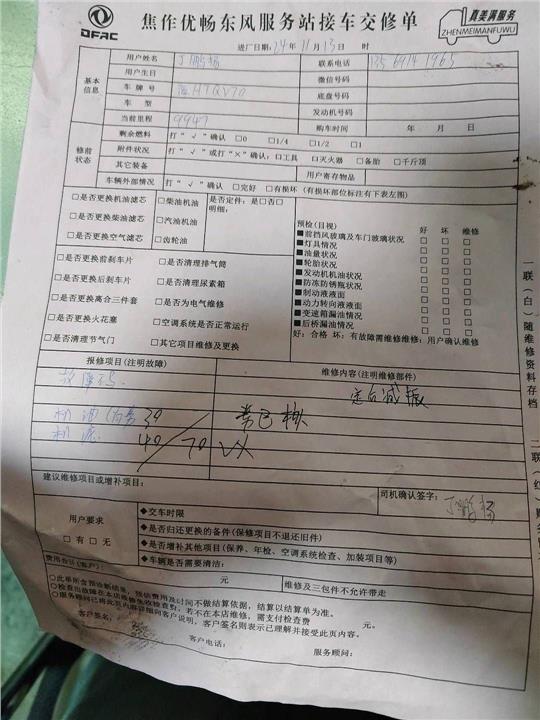 DFAC
焦作优畅东风服务站接车交修单
真美满服务
ZHENMEIMANFUWU
进厂日期：24年11月13日 时
基本信息
用户姓名 丁鹏杨 联系电话
用户生日 微信号码
车牌号 底盘号码
车型 发动机号码
当前里程 9947 购车时间 年 月 日
修前状态
剩余燃料 打“√”确认 □0 □1/4 □1/2 □1
附件状况 打“√”或打“×”确认：□工具 □灭火器 □备胎 □千斤顶
其它装备 用户寄存物品
车辆外部情况 打“√”确认 □完好 □有损坏（有损坏部位标注有下表左图）
□是否更换机油滤芯 □柴油机油 是否定件：是□否□
□是否更换柴油滤芯 □汽油机油 明细：
□是否更换空气滤芯 □齿轮油
□是否更换前刹车片 □是否清理排气筒
□是否更换后刹车片 □是否清理尿素箱
□是否更换离合三件套 □是否为电气维修
□是否更换火花塞 □空调系统是否正常运行
□是否清理节气门 □其它项目维修及更换
预检(目视) 好 坏 维修
■前挡风玻璃及车门玻璃状况 □ □ □
■灯具情况 □ □ □
■油量状况 □ □ □
■轮胎状况 □ □ □
■发动机机油状况 □ □ □
■防冻防锈瓶状况 □ □ □
■制动液液面 □ □ □
■动力转向液液面 □ □ □
■变速箱漏油情况 □ □ □
■后桥漏油情况 □ □ □
好：合格 坏：有故障需维修维修：用户确认维修
报修项目(注明故障) 维修内容(注明维修部件)
故障码
定后减振
机油
30
机滤
40 70
建议维修项目或增补项目：
司机确认签字：丁鹏杨
用户要求
□有 □无
◆交车时限
◆是否归还更换的备件(保修项目不退还旧件)
◆是否增补其他项目(保养、年检、空调系统检查、加装项目等)
◆车辆是否需要清洁：
费用合计(客户)： 元 维修及三包件不允许带走
○此单所含预诊断结果，预估费用及时间不做结算依据，结算以结算单为准。
○检查出故障在本店维修免收检查费，若不在本店维修，需支付检查费 元。
○服务顾问已将此页内容详细向客户说明，客户签名则表示已理解并接受此页内容。
客户签名：
客户电话： 服务顾问：
一联（白）随维修资料存档
二联（红）